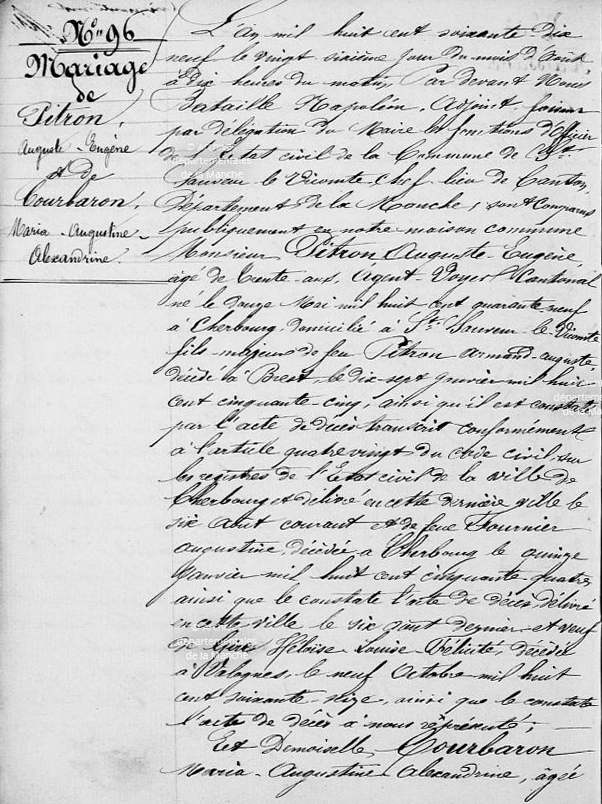 N° 96
Mariage
de
Pitron,
Auguste-Eugène
et de
Courbaron,
Maria-Augustine-
Alexandrine.
L'An mil huit cent soixante-dix
neuf le vingt sixième jour du mois d'Août
à dix heures du matin, Par devant Nous
Bataille Napoléon, Adjoint faisant
par délégation du Maire les fonctions d'Officier
de l'État civil de la Commune de St.
Sauveur le Vicomte, chef lieu de Canton,
Département de la Manche, sont comparus
publiquement en notre maison commune
Monsieur Pitron Auguste-Eugène,
âgé de trente ans, Agent Voyer Cantonal
né le douze Mai mil huit cent quarante-neuf
à Cherbourg, domicilié à St. Sauveur le Vicomte
fils majeur de feu Pitron Armand-Auguste,
décédé à Brest, le dix sept Janvier mil huit
cent cinquante-cinq, ainsi qu'il est constaté
par l'acte de décès transcrit conformément
à l'article quatre vingt du code civil sur
les registres de l'État civil de la ville de
Cherbourg et délivré en cette dernière ville le
six Août courant et de feue Fournier
Augustine, décédée à Cherbourg le quinze
Janvier mil huit cent cinquante quatre
ainsi que le constate l'acte de décès délivré
en cette ville le six Août dernier et veuf
de Héloïse Louise Félicité, décédée
à Valognes, le neuf Octobre mil huit
cent soixante seize, ainsi que le constate
l'acte de décès à nous représenté;
Et Demoiselle Courbaron
Maria-Augustine-Alexandrine, âgée
départementales
de la Manche
départementales
de la Manche